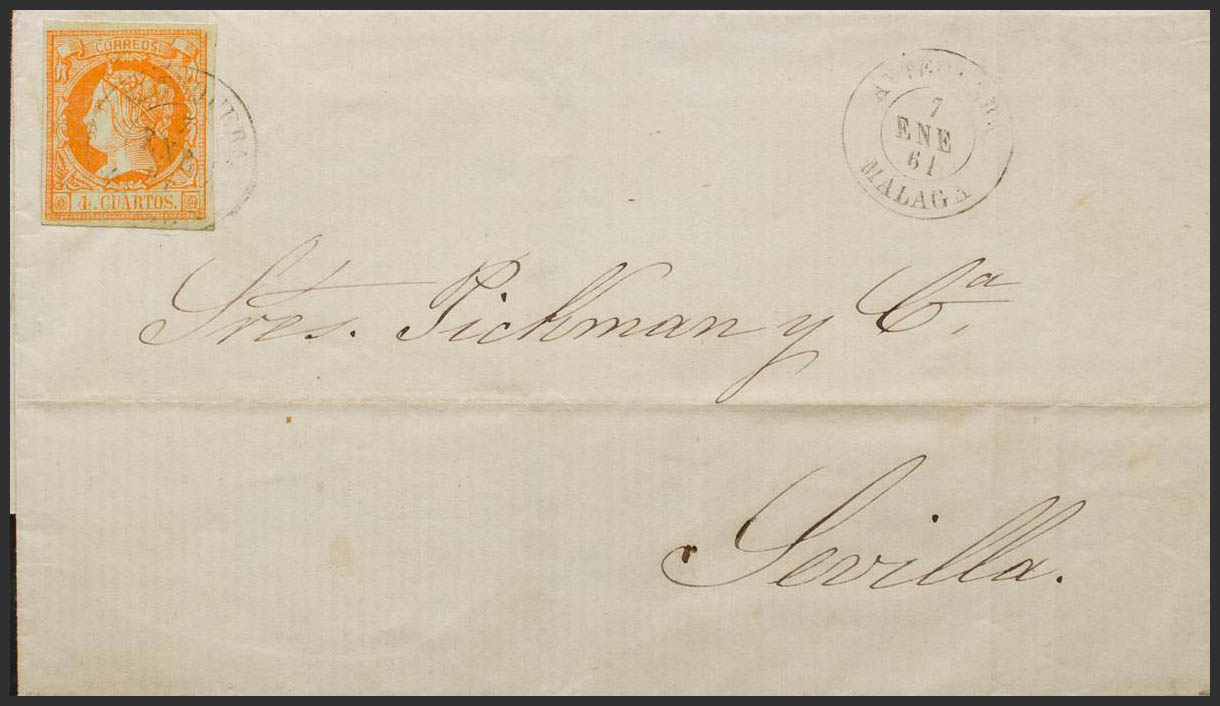 CORREOS
4 CUARTOS.
ANTEQUERA
7
ENE
61
MALAGA
Sres. Pickman y Cª.
Sevilla.